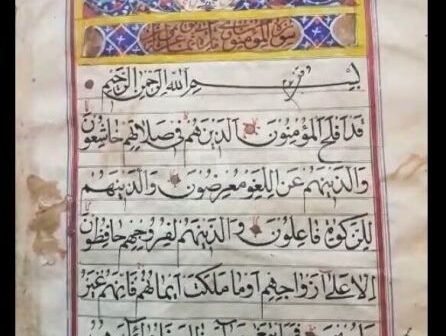 سورة المؤمنون
بسم الله الرحمن الرحيم
قد افلح المؤمنون الذين هم في صلاتهم خاشعون
والذين هم عن اللغو معرضون والذين هم
للزكوة فاعلون والذين هم لفروجهم حافظون
الا على ازواجهم او ما ملكت ايمانهم فانهم غير